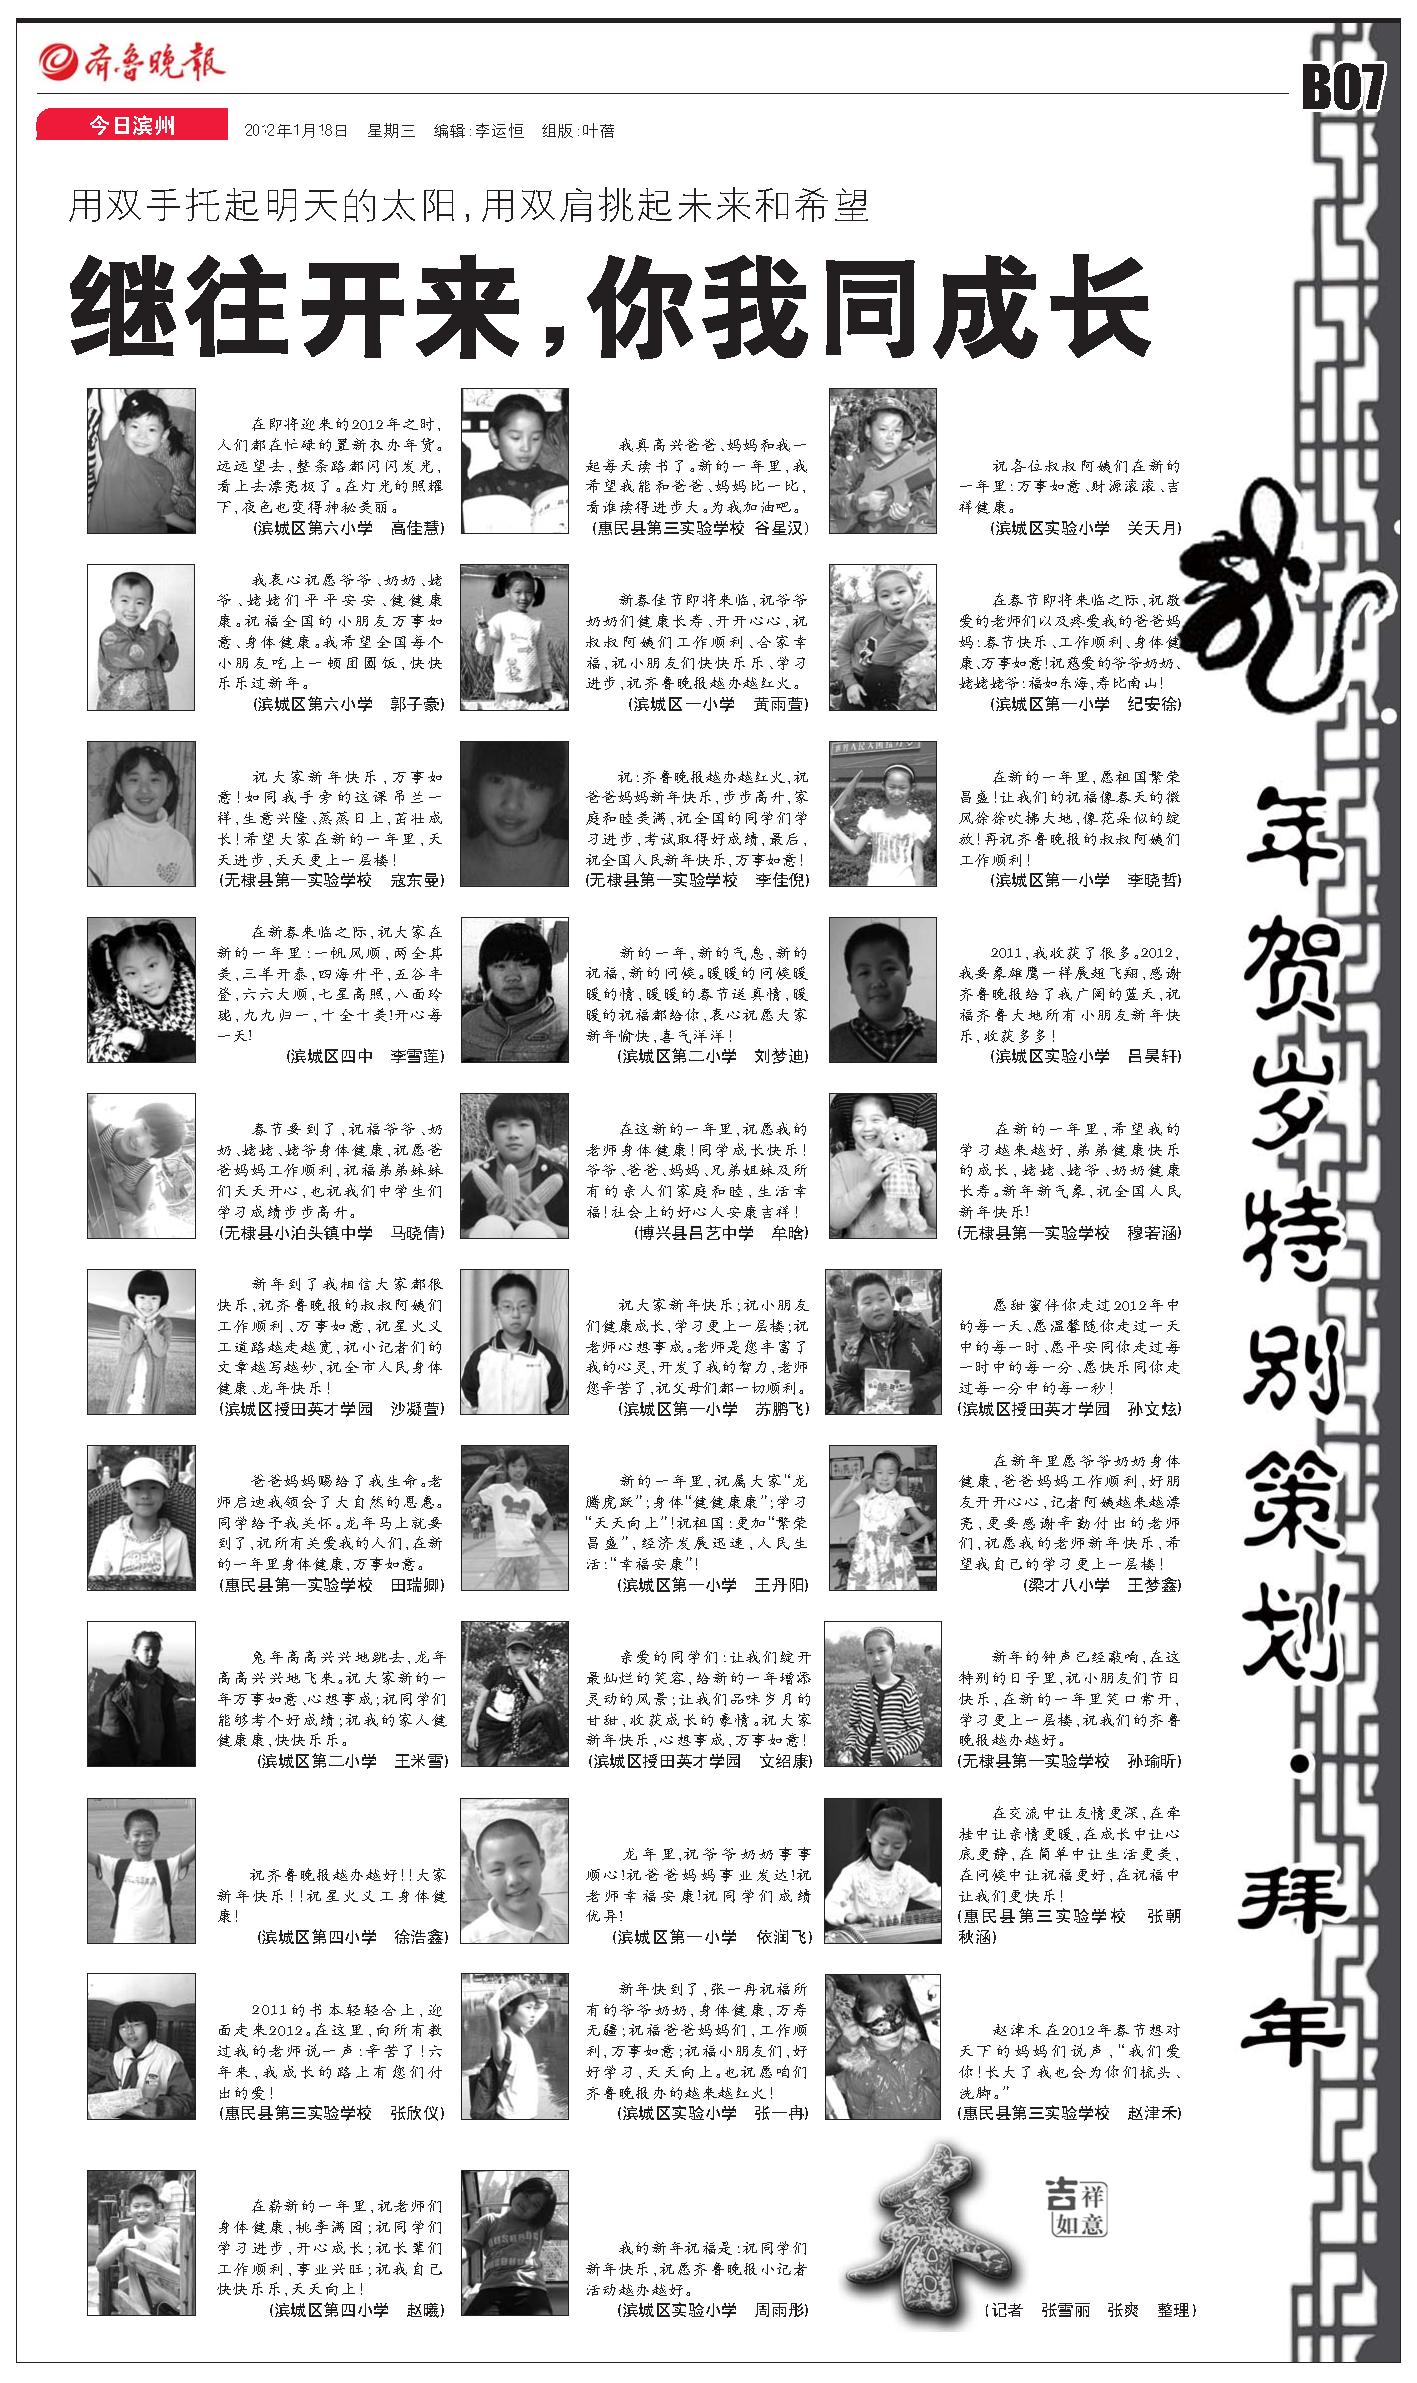 齐鲁晚报
B07
今日滨州
2012年1月18日 星期三 编辑:李运恒 组版:叶蓓
用双手托起明天的太阳,用双肩挑起未来和希望
继往开来,你我同成长
在即将迎来的2012年之时,
人们都在忙碌的置新衣办年货。
远远望去,整条路都闪闪发光,
看上去漂亮极了。在灯光的照耀
下,夜色也变得神秘美丽。
(滨城区第六小学 高佳慧)
我真高兴爸爸、妈妈和我一
起每天读书了。新的一年里,我
希望我能和爸爸、妈妈比一比,
看谁读得进步大。为我加油吧。
(惠民县第三实验学校 谷星汉)
祝各位叔叔阿姨们在新的
一年里:万事如意、财源滚滚、吉
祥健康。
(滨城区实验小学 关天月)
我衷心祝愿爷爷、奶奶、姥
爷、姥姥们平平安安、健健康
康。祝福全国的小朋友万事如
意、身体健康。我希望全国每个
小朋友吃上一顿团圆饭,快快
乐乐过新年。
(滨城区第六小学 郭子豪)
新春佳节即将来临,祝爷爷
奶奶们健康长寿、开开心心,祝
叔叔阿姨们工作顺利、合家幸
福,祝小朋友们快快乐乐、学习
进步,祝齐鲁晚报越办越红火。
(滨城区一小学 黄雨萱)
在春节即将来临之际,祝敬
爱的老师们以及疼爱我的爸爸妈
妈:春节快乐、工作顺利、身体健
康、万事如意!祝慈爱的爷爷奶奶、
姥姥姥爷:福如东海,寿比南山!
(滨城区第一小学 纪安徐)
祝大家新年快乐,万事如
意!如同我手旁的这课吊兰一
样,生意兴隆、蒸蒸日上,茁壮成
长!希望大家在新的一年里,天
天进步,天天更上一层楼!
(无棣县第一实验学校 寇东曼)
祝:齐鲁晚报越办越红火,祝
爸爸妈妈新年快乐,步步高升,家
庭和睦美满,祝全国的同学们学
习进步,考试取得好成绩,最后,
祝全国人民新年快乐,万事如意!
(无棣县第一实验学校 李佳倪)
在新的一年里,愿祖国繁荣
昌盛!让我们的祝福像春天的微
风徐徐吹拂大地,像花朵似的绽
放!再祝齐鲁晚报的叔叔阿姨们
工作顺利!
(滨城区第一小学 李晓哲)
在新春来临之际,祝大家在
新的一年里:一帆风顺,两全其
美,三羊开泰,四海升平,五谷丰
登,六六大顺,七星高照,八面玲
珑,九九归一,十全十美!开心每
一天!
(滨城区四中 李雪莲)
新的一年,新的气息,新的
祝福,新的问候。暖暖的问候暖
暖的情,暖暖的春节送真情,暖
暖的祝福都给你,衷心祝愿大家
新年愉快,喜气洋洋!
(滨城区第二小学 刘梦迪)
2011,我收获了很多。2012,
我要象雄鹰一样展翅飞翔,感谢
齐鲁晚报给了我广阔的蓝天,祝
福齐鲁大地所有小朋友新年快
乐,收获多多!
(滨城区实验小学 吕昊轩)
春节要到了,祝福爷爷、奶
奶、姥姥、姥爷身体健康,祝愿爸
爸妈妈工作顺利,祝福弟弟妹妹
们天天开心,也祝我们中学生们
学习成绩步步高升。
(无棣县小泊头镇中学 马晓倩)
在这新的一年里,祝愿我的
老师身体健康!同学成长快乐!
爷爷、爸爸、妈妈、兄弟姐妹及所
有的亲人们家庭和睦,生活幸
福!社会上的好心人安康吉祥!
(博兴县吕艺中学 牟晗)
在新的一年里,希望我的
学习越来越好,弟弟健康快乐
的成长,姥姥、姥爷、奶奶健康
长寿。新年新气象,祝全国人民
新年快乐!
(无棣县第一实验学校 穆若涵)
新年到了我相信大家都很
快乐,祝齐鲁晚报的叔叔阿姨们
工作顺利、万事如意,祝星火义
工道路越走越宽,祝小记者们的
文章越写越妙,祝全市人民身体
健康、龙年快乐!
(滨城区授田英才学园 沙凝萱)
祝大家新年快乐;祝小朋友
们健康成长,学习更上一层楼;祝
老师心想事成。老师是您丰富了
我的心灵,开发了我的智力,老师
您辛苦了,祝父母们都一切顺利。
(滨城区第一小学 苏鹏飞)
愿甜蜜伴你走过2012年中
的每一天、愿温馨随你走过一天
中的每一时、愿平安同你走过每
一时中的每一分、愿快乐同你走
过每一分中的每一秒!
(滨城区授田英才学园 孙文炫)
爸爸妈妈赐给了我生命。老
师启迪我领会了大自然的恩惠。
同学给予我关怀。龙年马上就要
到了,祝所有关爱我的人们,在新
的一年里身体健康,万事如意。
(惠民县第一实验学校 田瑞卿)
新的一年里,祝属大家“龙
腾虎跃”;身体“健健康康”;学习
“天天向上”!祝祖国:更加“繁荣
昌盛”,经济发展迅速,人民生
活:“幸福安康”!
(滨城区第一小学 王丹阳)
在新年里愿爷爷奶奶身体
健康,爸爸妈妈工作顺利,好朋
友开开心心,记者阿姨越来越漂
亮,更要感谢辛勤付出的老师
们,祝愿我的老师新年快乐,希
望我自己的学习更上一层楼!
(梁才八小学 王梦鑫)
兔年高高兴兴地跳去,龙年
高高兴兴地飞来。祝大家新的一
年万事如意、心想事成;祝同学们
能够考个好成绩;祝我的家人健
健康康,快快乐乐。
(滨城区第二小学 王米雪)
亲爱的同学们:让我们绽开
最灿烂的笑容,给新的一年增添
灵动的风景;让我们品味岁月的
甘甜,收获成长的豪情。祝大家
新年快乐,心想事成,万事如意!
(滨城区授田英才学园 文绍康)
新年的钟声已经敲响,在这
特别的日子里,祝小朋友们节日
快乐,在新的一年里笑口常开,
学习更上一层楼,祝我们的齐鲁
晚报越办越好。
(无棣县第一实验学校 孙瑜昕)
祝齐鲁晚报越办越好!!大家
新年快乐!!祝星火义工身体健
康!
(滨城区第四小学 徐浩鑫)
龙年里,祝爷爷奶奶事事
顺心!祝爸爸妈妈事业发达!祝
老师幸福安康!祝同学们成绩
优异!
(滨城区第一小学 依润飞)
在交流中让友情更深,在牵
挂中让亲情更暖,在成长中让心
底更静,在简单中让生活更美,
在问候中让祝福更好,在祝福中
让我们更快乐!
(惠民县第三实验学校 张朝
秋涵)
2011的书本轻轻合上,迎
面走来2012。在这里,向所有教
过我的老师说一声:辛苦了!六
年来,我成长的路上有您们付
出的爱!
(惠民县第三实验学校 张欣仪)
新年快到了,张一冉祝福所
有的爷爷奶奶,身体健康,万寿
无疆;祝福爸爸妈妈们,工作顺
利,万事如意;祝福小朋友们,好
好学习,天天向上。也祝愿咱们
齐鲁晚报办的越来越红火!
(滨城区实验小学 张一冉)
赵津禾在2012年春节想对
天下的妈妈们说声,“我们爱
你!长大了我也会为你们梳头、
洗脚。”
(惠民县第三实验学校 赵津禾)
在崭新的一年里,祝老师们
身体健康,桃李满园;祝同学们
学习进步,开心成长;祝长辈们
工作顺利,事业兴旺;祝我自己
快快乐乐,天天向上!
(滨城区第四小学 赵曦)
我的新年祝福是:祝同学们
新年快乐,祝愿齐鲁晚报小记者
活动越办越好。
(滨城区实验小学 周雨彤)
吉祥
如意
(记者 张雪丽 张爽 整理)
龙年贺岁特别策划·拜年